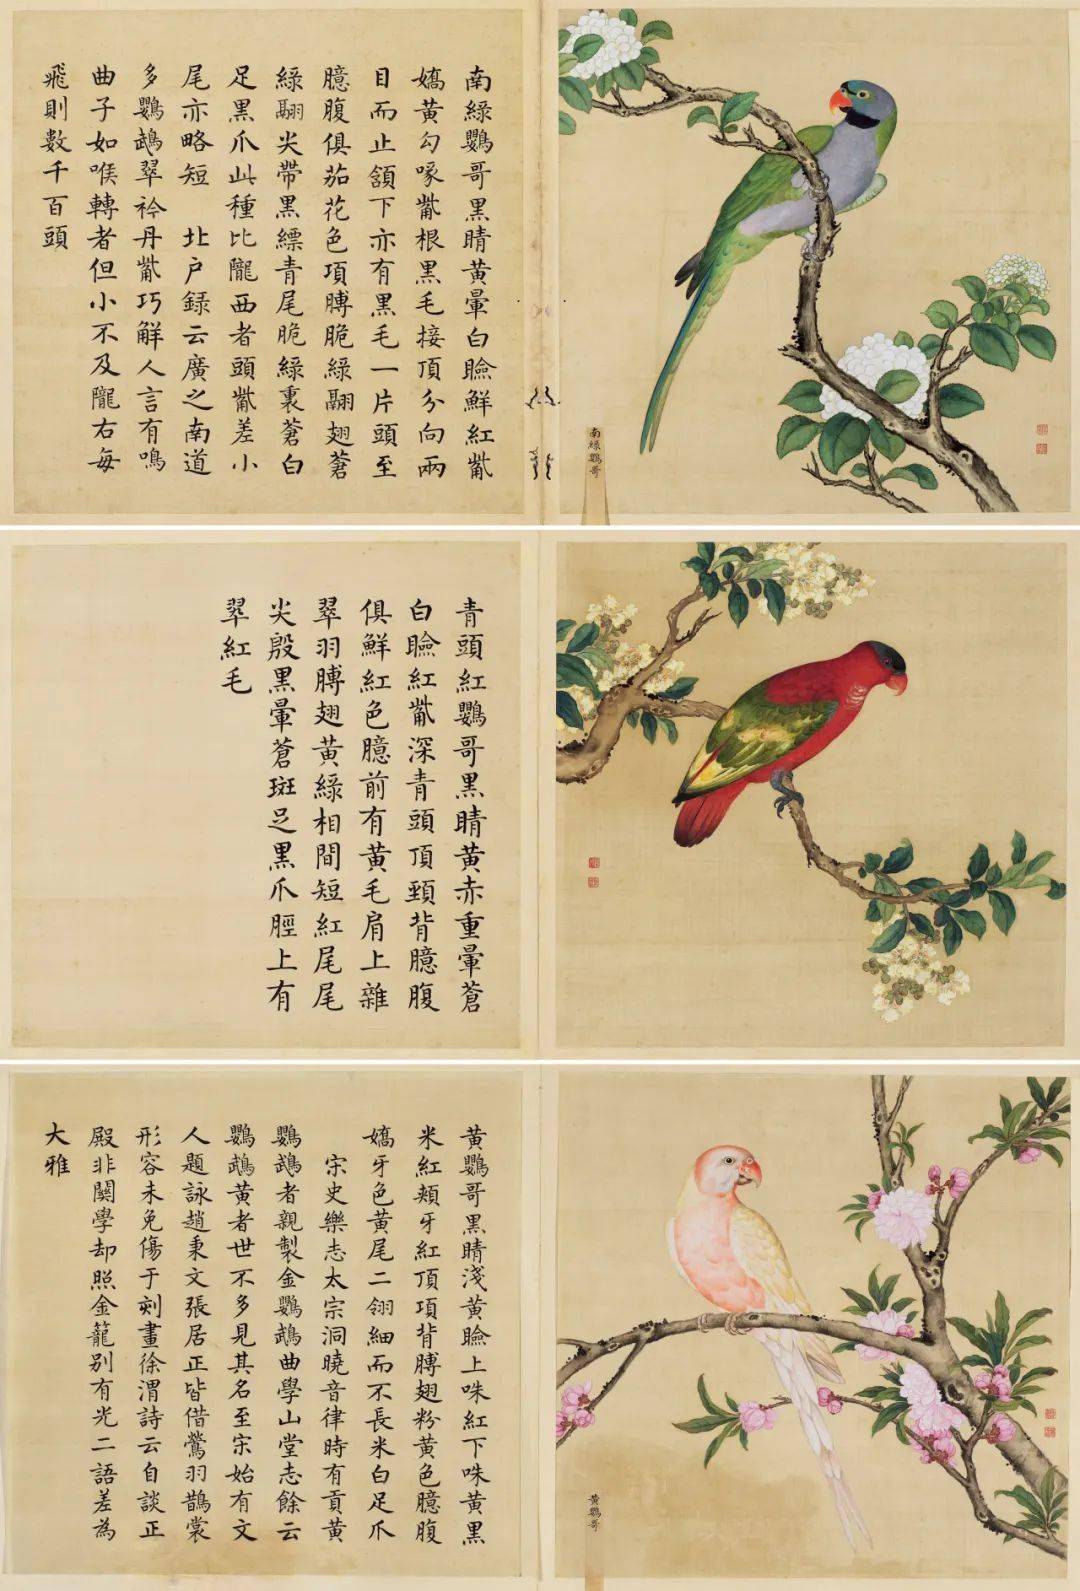 南綠鸚哥黑睛黃暈白瞼鮮紅觜
嬌黃勾喙觜根黑毛接頂分向兩
目而止頷下亦有黑毛一片頭至
臆腹俱茄花色項膊脆綠翮翅蒼
綠翮尖帶黑縹青尾脆綠裏蒼白
足黑爪此種比隴西者頭觜差小
尾亦略短 北户錄云廣之南道
多鸚鵡翠衿丹觜巧解人言有鳴
曲子如喉轉者但小不及隴右每
飛則數千百頭
南綠鸚哥
青頭紅鸚哥黑睛黃赤重暈蒼
白瞼紅觜深青頭頂頸背臆腹
俱鮮紅色臆前有黃毛肩上雜
翠羽膊翅黃綠相間短紅尾尾
尖殷黑暈蒼斑足黑爪脛上有
翠紅毛
黃鸚哥黑睛淺黃瞼上咮紅下咮黃黑
米紅頰牙紅頂項背膊翅粉黃色臆腹
嬌牙色黃尾二翎細而不長米白足爪
宋史樂志太宗洞曉音律時有貢黃
鸚鵡者親製金鸚鵡曲學山堂志餘云
鸚鵡黃者世不多見其名至宋始有文
人題詠趙秉文張居正皆借鶯羽鵲裳
形容未免傷于刻畫徐渭詩云自談正
殿非關學却照金籠别有光二語差為
大雅
黃鸚哥